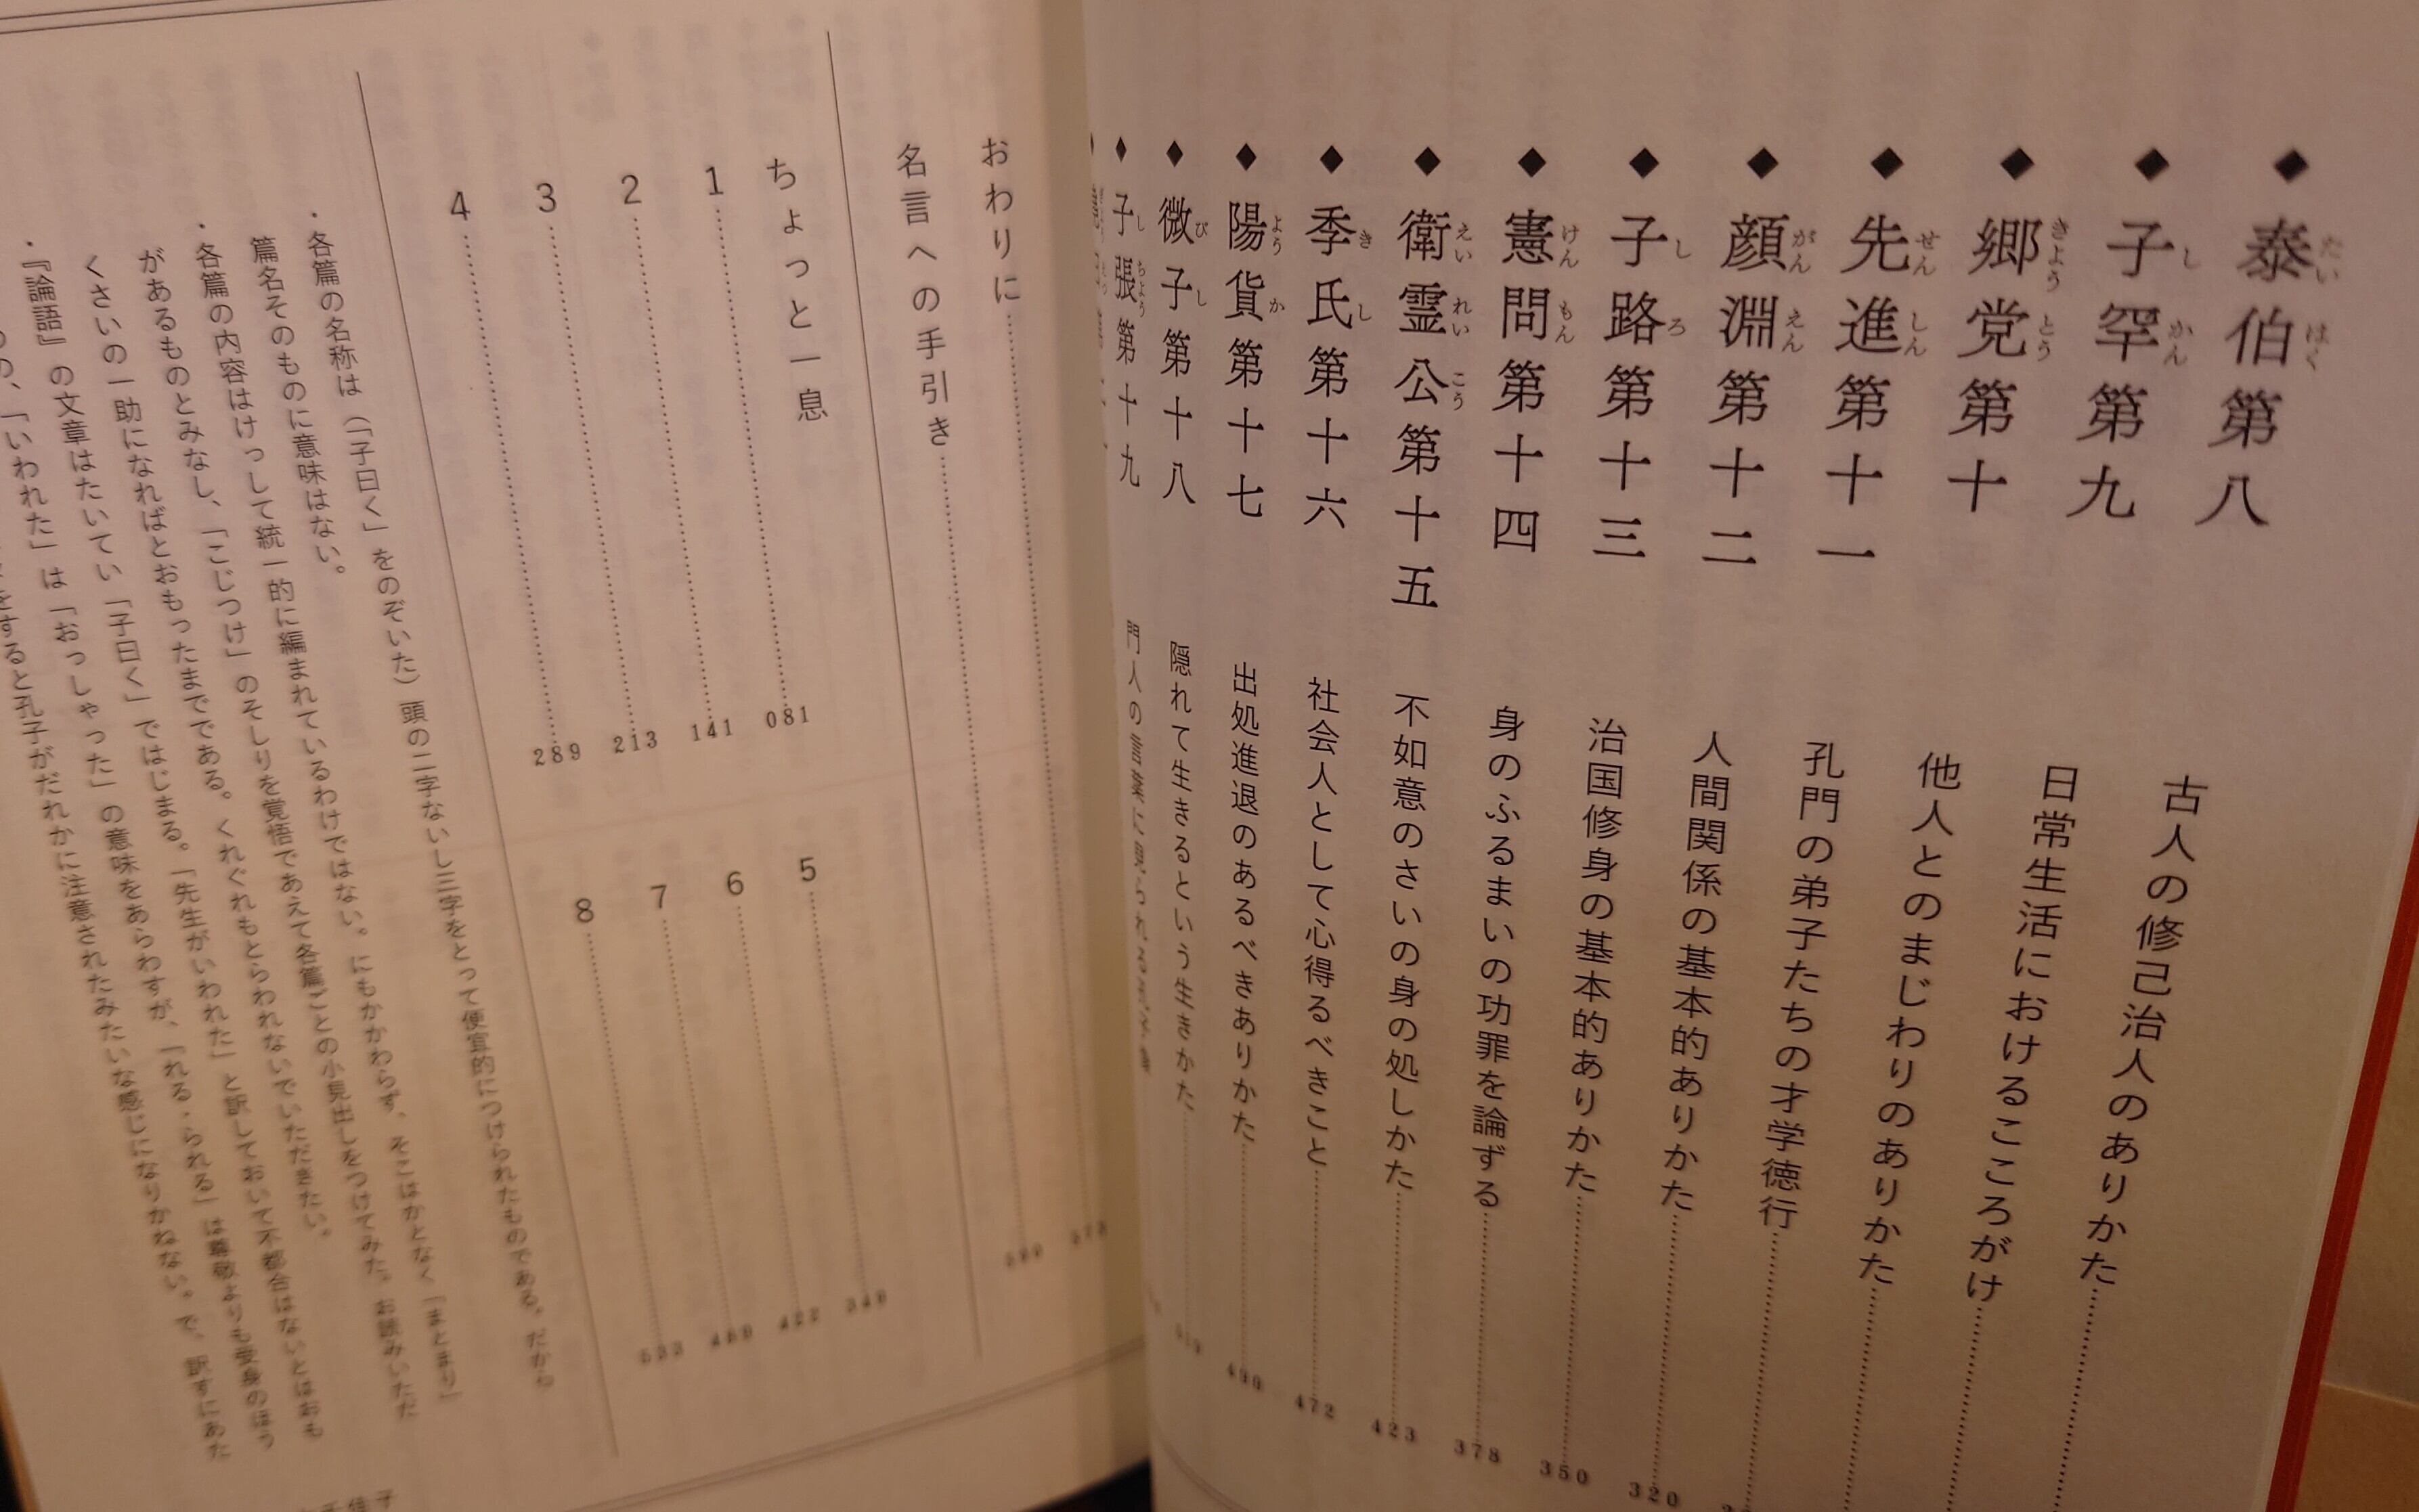 ◆泰伯第八 古人の修己治人のありかた
◆子罕第九 日常生活におけるこころがけ
◆郷党第十 他人とのまじわりのありかた
◆先進第十一 孔門の弟子たちの才学徳行
◆顔淵第十二 人間関係の基本的ありかた 320
◆子路第十三 治国修身の基本的ありかた 350
◆憲問第十四 身のふるまいの功罪を論ずる 378
◆衛霊公第十五 不如意のさいの身の処しかた 423
◆季氏第十六 社会人として心得るべきこと 472
◆陽貨第十七 出処進退のあるべきありかた 490
◆微子第十八 隠れて生きるという生きかた
◆子張第十九 門人の
おわりに
名言への手引き
ちょっと一息
1 081
2 141
3 213
4 289
5 349
6 422
7 469
8 533
・各篇の名称は(「子曰く」をのぞいた)頭の二字ないし三字をとって便宜的につけられたものである。だから
篇名そのものに意味はない。
・各篇の内容はけっして統一的に編まれているわけではない。にもかかわらず、そこはかとなく「まとまり」
があるものとみなし、「こじつけ」のそしりを覚悟であえて各篇ごとの小見出しをつけてみた。お読みいただ
くさいの一助になればとおもったまでである。くれぐれもとらわれないでいただきたい。
・『論語』の文章はたいてい「子曰く」ではじまる。「先生がいわれた」と訳しておいて不都合はないとはおも
の、「いわれた」は「おっしゃった」の意味をあらわすが、「れる・られる」は尊敬よりも受身のほう
をすると孔子がだれかに注意されたみたいな感じになりかねない。で、訳すにあた